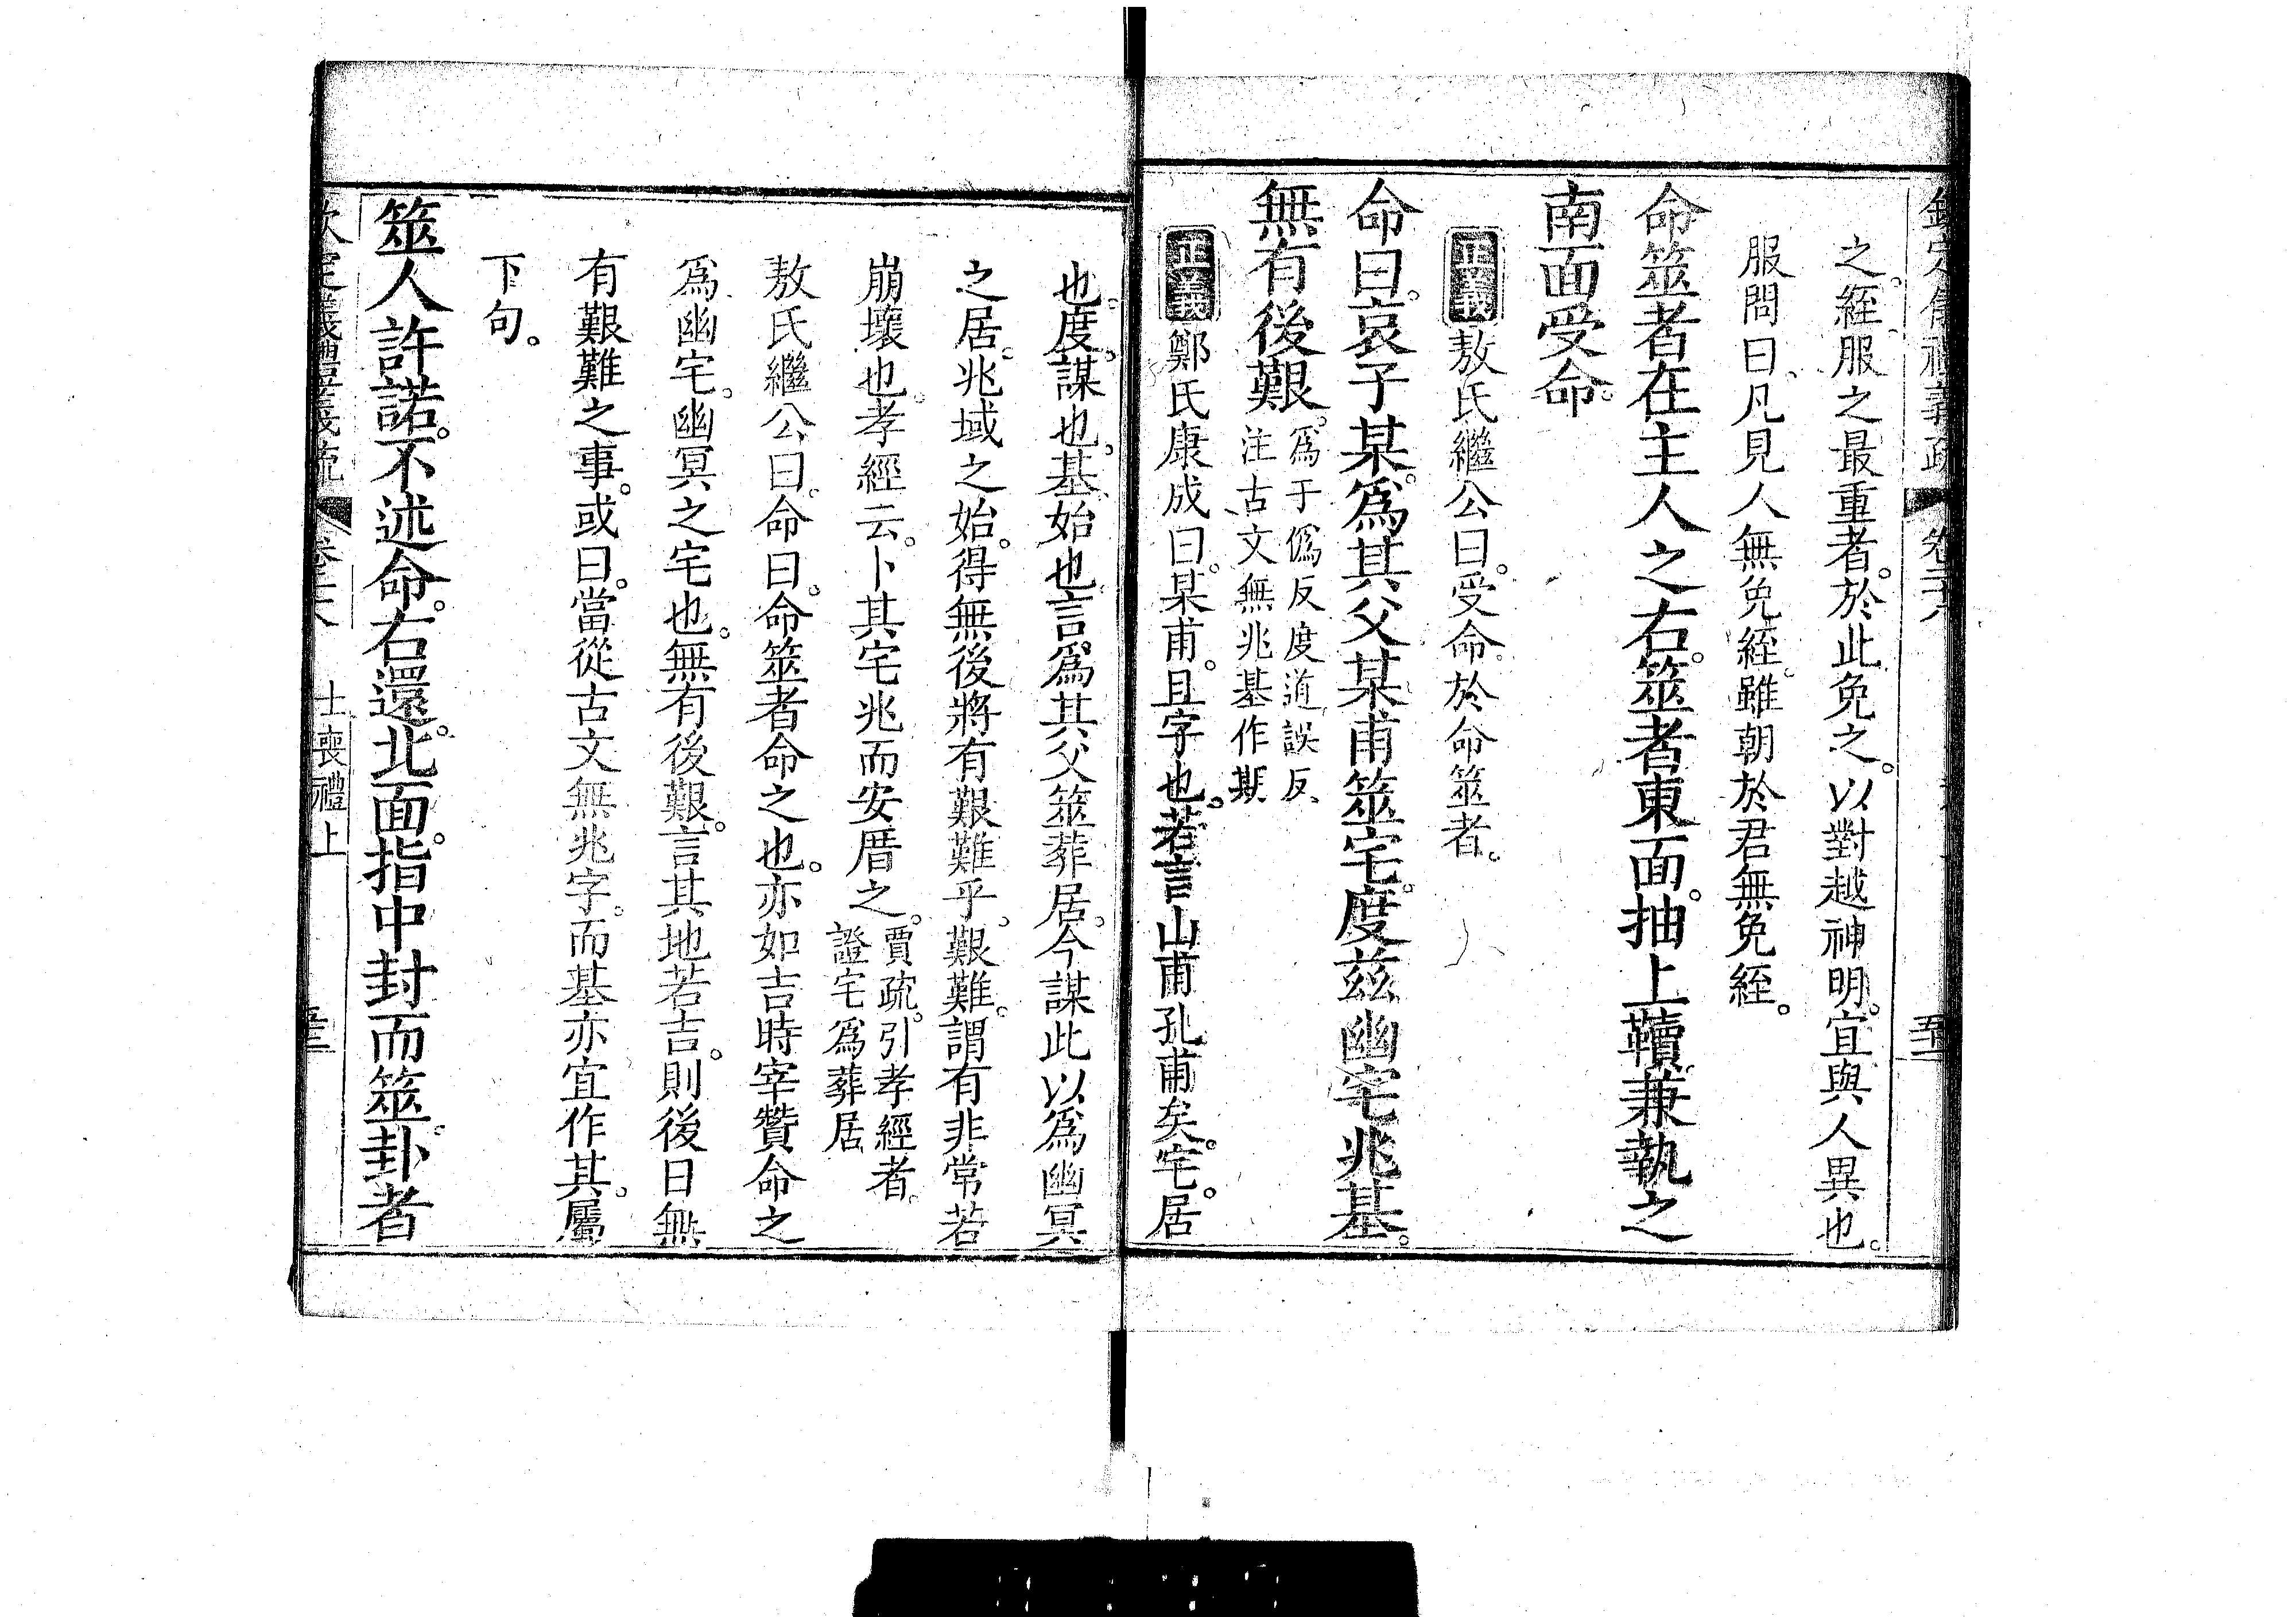 欽定儀禮義疏 卷二十八
之絰。服之最重者。於此免之。以對越神明。宜與人異也。
服問曰。凡見人無免絰。雖朝於君無免絰。
命筮者在主人之右。筮者東面。抽上韇。兼執之
南面受命。
正義敖氏繼公曰。受命。於命筮者。
命曰。哀子某。爲其父某甫筮宅。度兹幽宅兆基。
無有後艱。爲于僞反度道誤反
注古文無兆基作期
正義鄭氏康成曰。某甫。且字也。若言山甫孔甫矣。宅。居
也。度。謀也。基。始也。言爲其父筮葬居。今謀此以爲幽冥
之居。兆域之始。得無後將有艱難乎。艱難。謂有非常若
崩壞也。孝經云。卜其宅兆而安厝之。賈疏。引孝經者。
證宅爲葬居
敖氏繼公曰。命曰。命筮者命之也。亦如吉時宰贊命之
爲幽宅。幽冥之宅也。無有後艱。言其地若吉。則後日無
有艱難之事。或曰。當從古文無兆字。而基亦宜作其。屬
下句。
筮人許諾。不述命。右還。北面。指中封而筮。卦者
欽定儀禮義疏 士喪禮上